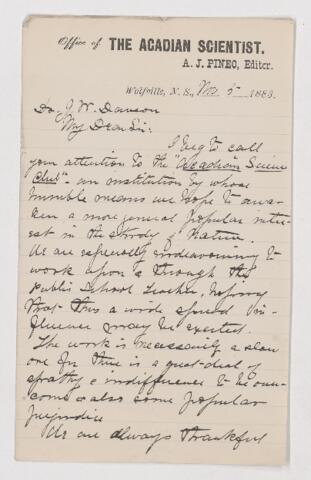 Office of THE ACADIAN SCIENTIST.
A. J. PINEO, Editor.
Wolfville, N. S., 5 1883
Dr J. W. Dawson
My Dear Sir:
I beg to call
your attention to the "Acadian Science
Club" - an institution by whose
humble means we hope to awa-
ken a more general popular inter-
est in the study of Nature.
We are especially endeavouring to
work upon & through the
public School teacher, hoping
that thus a wide spread in-
fluence may be exerted.
The work is necessarily a slow
one for there is a great deal of
apathy & indifference to be over-
come & also some popular
prejudice
We are always thankful